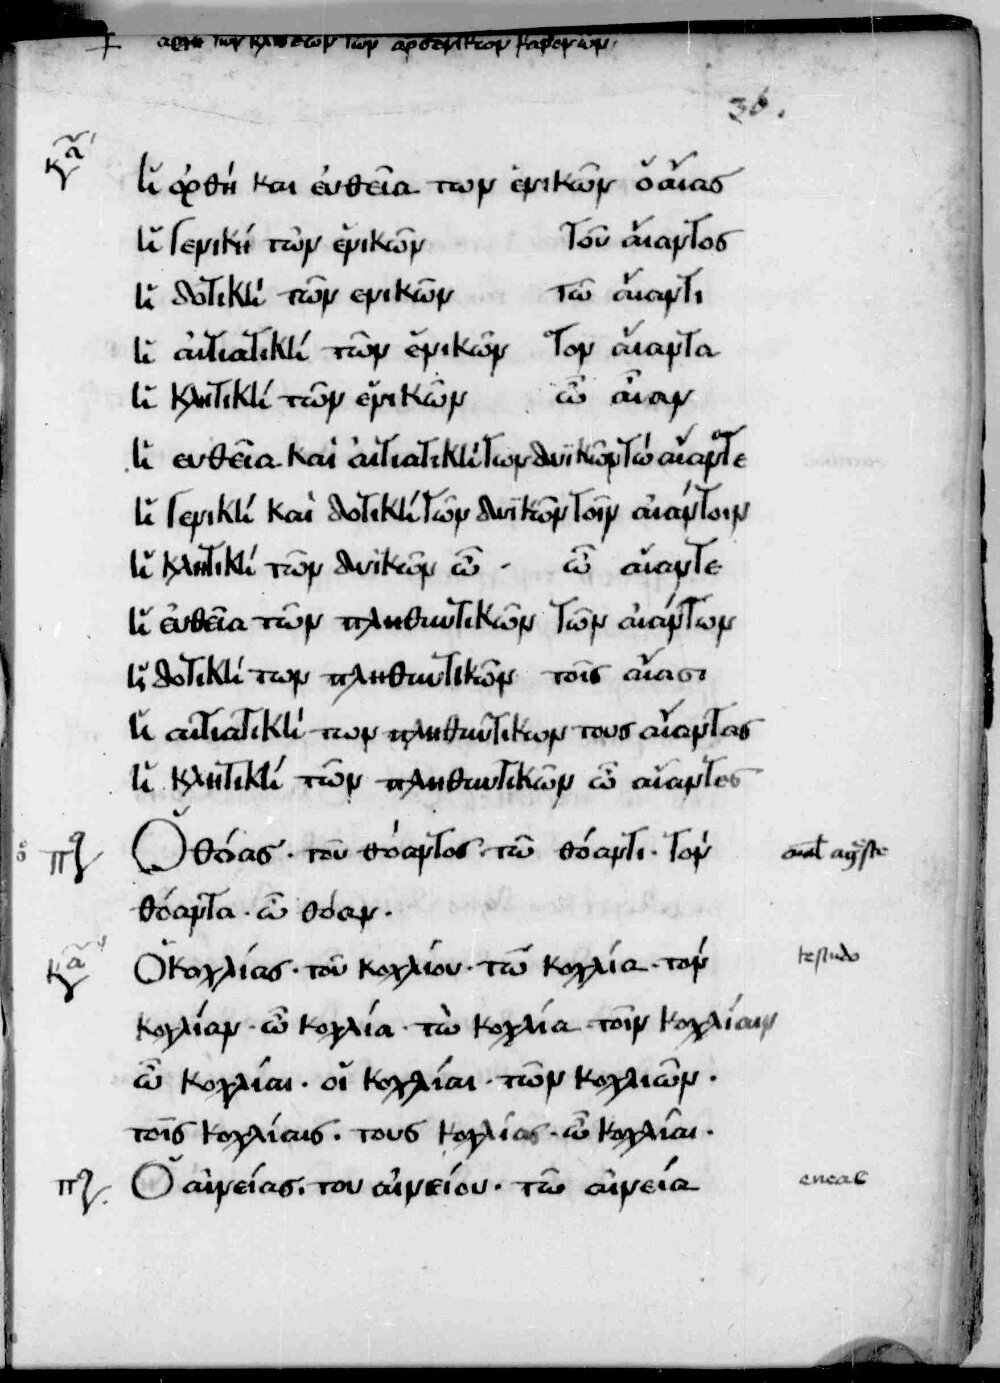 ἀρχὴ τῶν κλίσεων τῶν ἀρσενικῶν κανόνων
36.
κα΄
ἡ ὀρθή και ἐυθεῖα των ἑνικῶν ὁ αἴας
ἡ Γενική τῶν ἑνικῶν τοῦ αἴαντος
ἡ δοτική τῶν ενικῶν τῶ αἴαντι
ἡ αἰτιατική τῶν ἑνικῶν τὸν αἴαντα
ἡ κλητική τῶν ἑνικῶν ὦ αἶαν
ἡ ευθεῖα και ἀιτιατική των δυϊκῶν τώ αἴαντε
ἡ Γενική καὶ δοτική τῶν δυϊκῶν τοῖν αἰάντοιν
ἡ κλητική τῶν δυϊκῶν ὦ · ὦ αἴαντε
ἡ ἐυθεῖα τῶν πληθυντικῶν τῶν ἀιάντων
ἡ δοτική των πληθυντικῶν τοῖς αἴασι
ἡ αιτιατική των πληθυντικων τους αἴαντας
ἡ κλητική τῶν πληθυντικῶν ὦ αἴαντες
Ὁ θόας · τοῦ θόαντος τῶ θόαντι · τὸν
θόαντα · ὦ θόαν ·
κα΄
Ὁ κοχλίας · τοῦ κοχλίου · τῶ κοχλία · τόν
testudo
κοχλίαν · ὦ κοχλία · τὼ κοχλία τοῖν κοχλίαιν
ὦ κοχλίαι · οἱ κοχλίαι · τῶν κοχλιῶν ·
τοῖς κοχλίαις · τους κοχλίας · ὦ κοχλίαι ·
Ὁ αἰνείας · του αἰνείου · τῶ αἰνεία
eneas